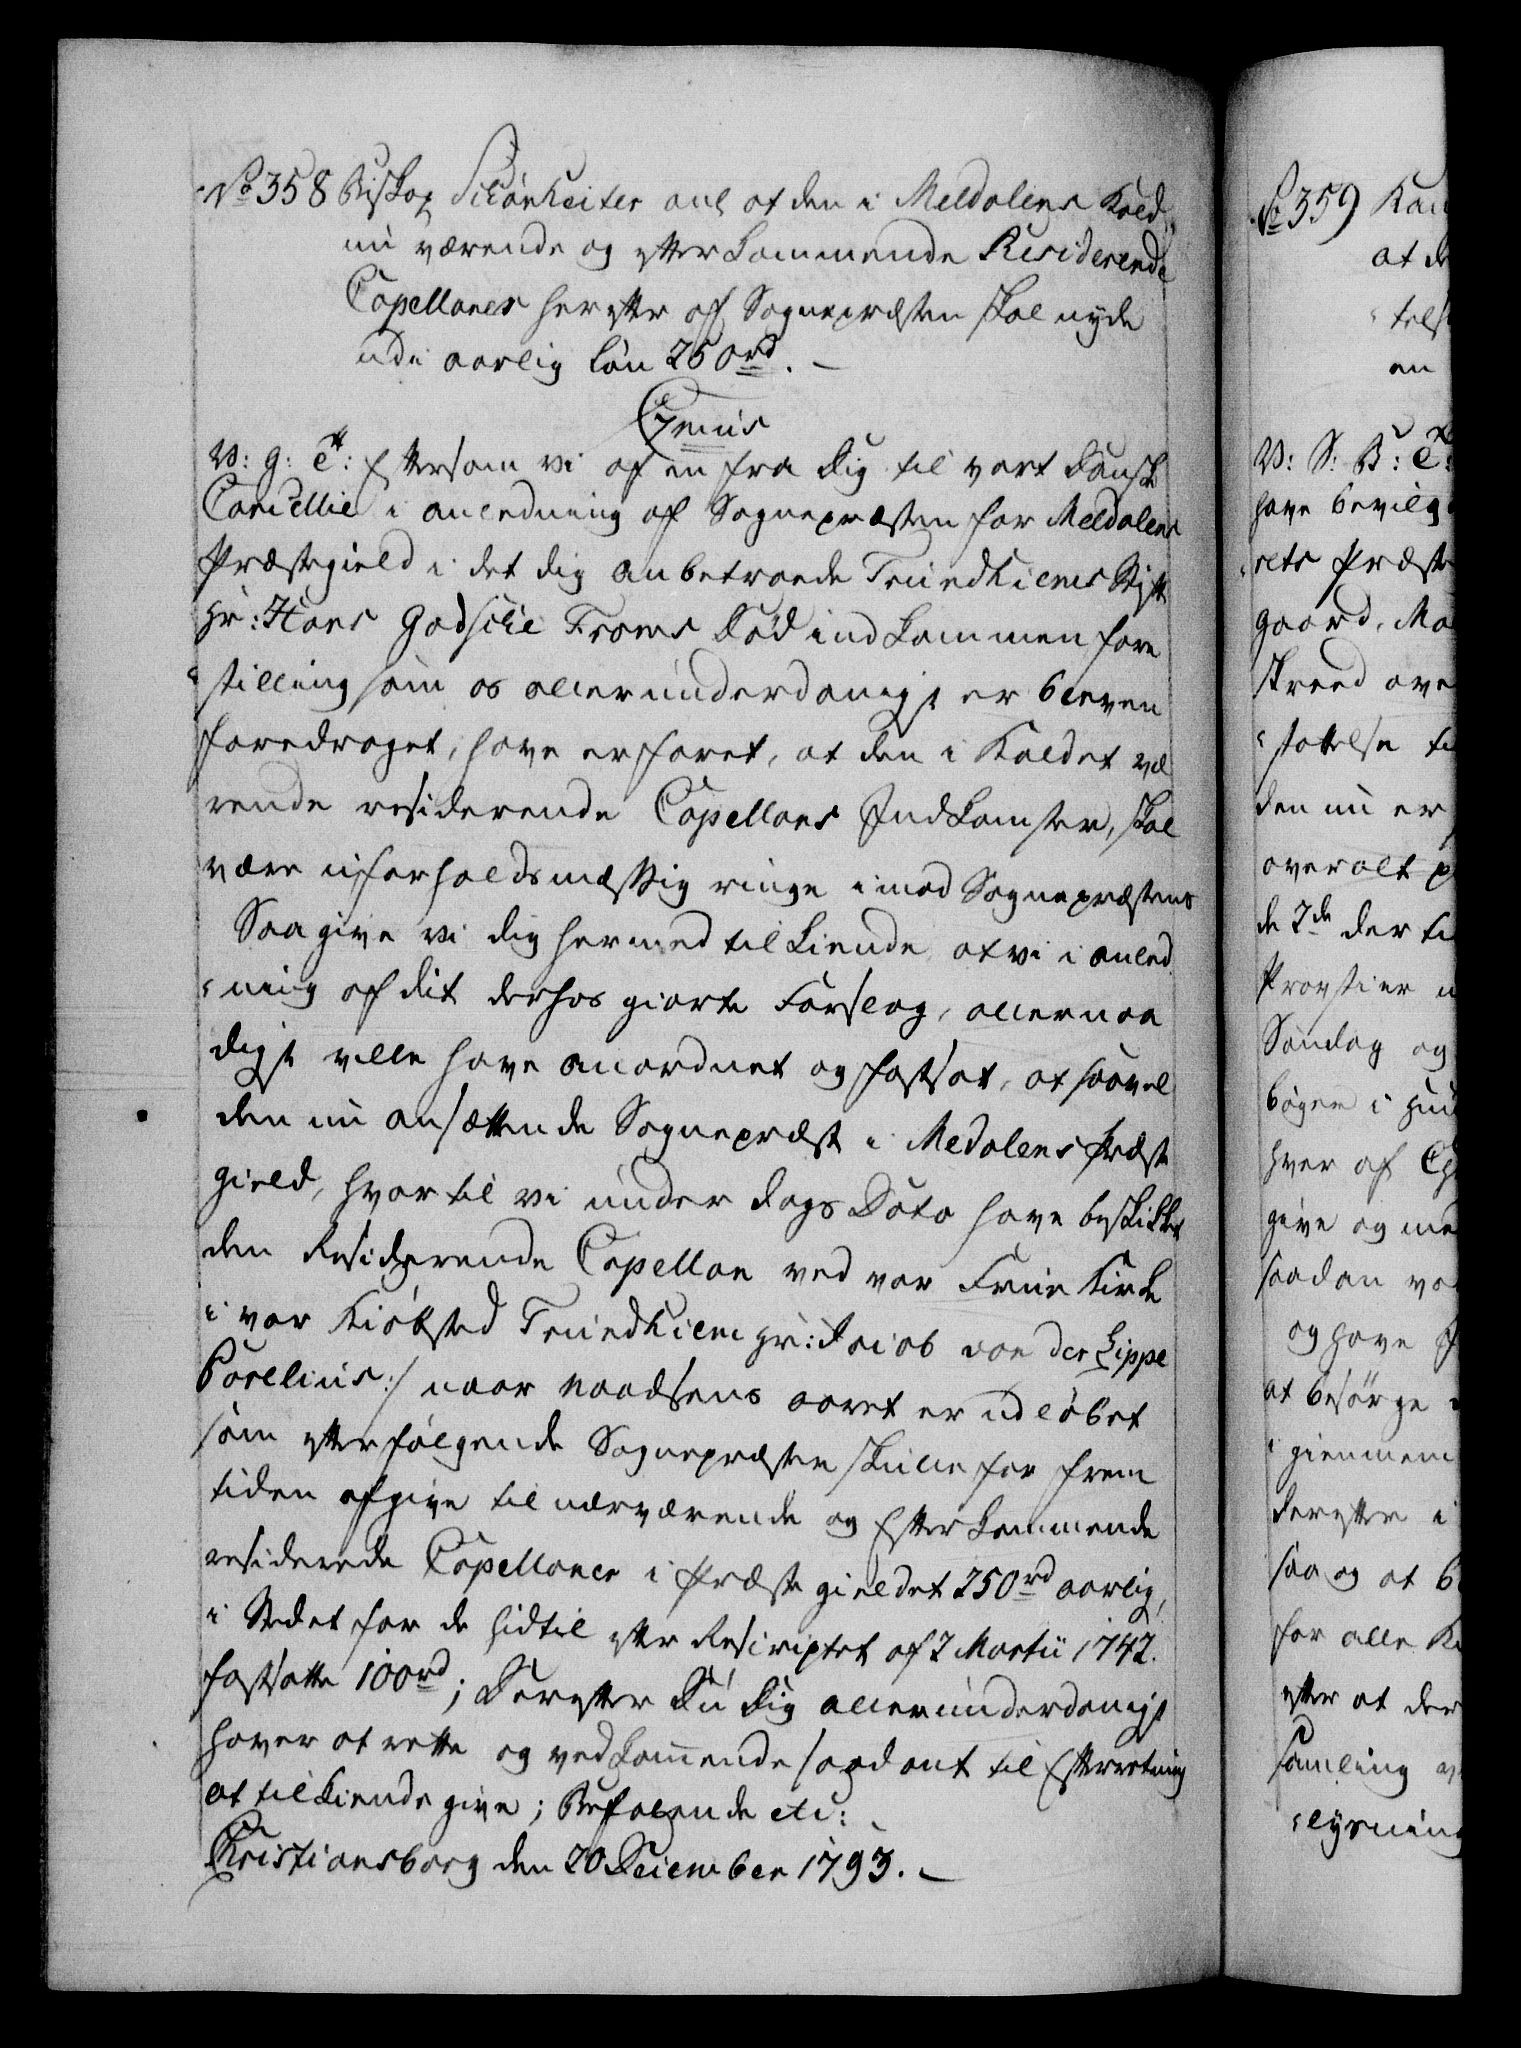 No 358 Biskop Schönheiter anl at den i Meldalens Kald
nu værende og efterkommende Residerende
Capellaner herefter af Sognepræsten skal nyde
udi aarlig Løn 250 rd. –
C7mus
V: G: Etc: Eftersom vi af en fra Dig til vort Danske
Cancellie i anledning af Sognepræsten for Meldalens
Præstegield i det dig anbetroede Trundhiems Stift
Hr: Hans Godsche Froms Død indkommen fore
stilling som os allerunderdanigst er bleven
foredraget, have erfaret, at den i Kaldet væ
rende residerende Capellans Indkomster, skal
være uforholdsmæssig ringe imod Sognepræstens
Saa give vi dig hermed tilkiende, at vi i anled
ning af dit derhos giorte Forslag, allernaa
digst ville have anordnet og fastsat, at saavel
den nu ansættende Sognepræst i Medalens Præste
gield, hvortil vi under Dags Dato have beskikket
den Residerende Capellan ved vor Frue Kirke
i vor Kiøbsted Trundhiem Hr: Jacob von der Lippe
Parelius :/ naar Naadsens aaret er udløbet
som efterfølgende Sognepræster skulle for frem
tiden afgive til nærværende og Efterkommende
residerede Capellaner i Præstegieldet 250 rd aarlig,
i Stedet for de hidtil efter Rescriptet af 2 Martii 1742.
fastsatte 100 rd; Derefter Du Dig allerunderdanigst
haver at rette og vedkommende saadant til Efterretning
at tilkiendegive; Befalende etc:
Christiansborg den 20 December 1793. –
No 359 Kan
at de
telse
en
V: S: B: Etc:
have bevilg
rets Præste
gaard, Ma
skreed ove
stattelse ti
den nu er
overalt p
de 2de der ti
Provstier
Søndag og
bøger i
hver af Ch
give og me
saadan vo
og have
at besørge
i giennem
derefter i
saa og at b
for alle K
efter at der
samling
lysning